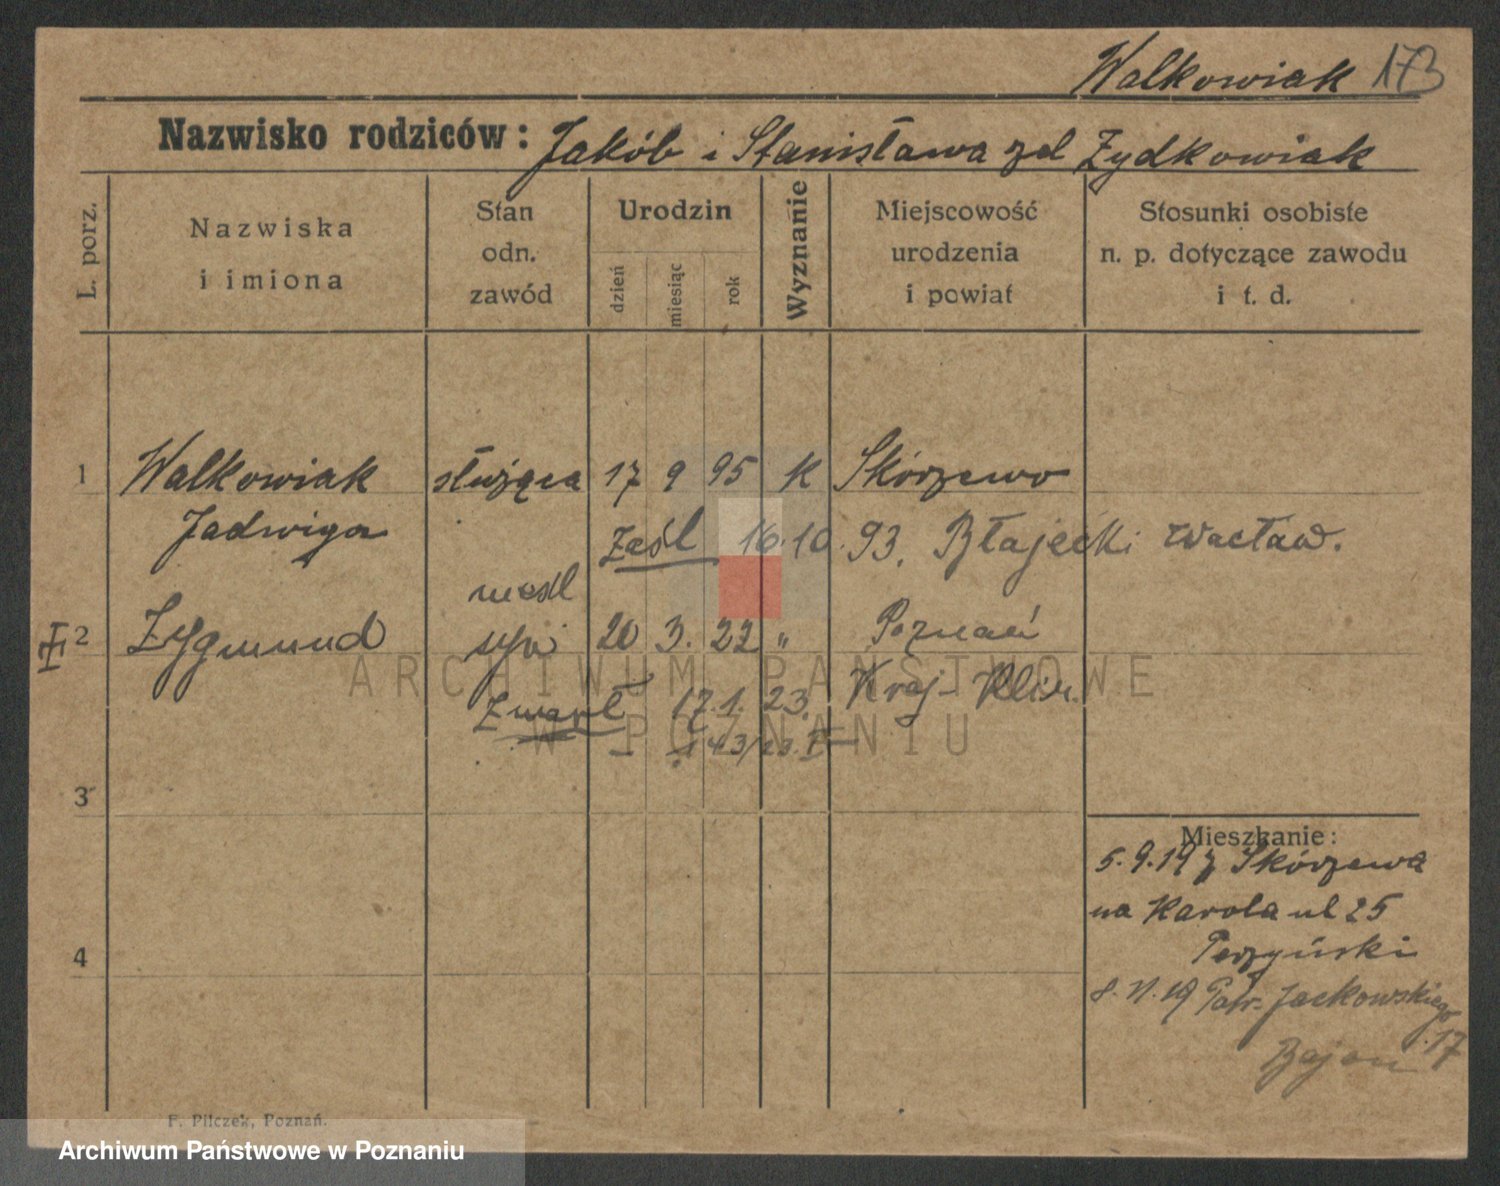 Walkowiak 173
Nazwisko rodziców: Jakób i Stanisława zd Zydkowiak
L. porz.
Nazwiska i imiona
Stan odn. zawód
Urodzin
dzień
miesiąc
rok
Wyznanie
Miejscowość urodzenia i powiat
Stosunki osobiste n. p. dotyczące zawodu i t. d.
1 Walkowiak służąca 17 9 95 k Skórzewo
Jadwiga
Zaśl 16.10.93. Błajecki Wacław.
nieśl
2 Zygmund syn 20 3. 22 " Poznań
Zmarł 17.1.23. Kraj.
143/23.
3
4
Mieszkanie:
5.9.19 z Skórzewa
na Karola ul 25
Perzyński
8.11.19 Patr. Jackowskiego 17
F. Pilczek, Poznań.
ARCHIWUM PAŃSTWOWE
W POZNANIU
Archiwum Państwowe w Poznaniu